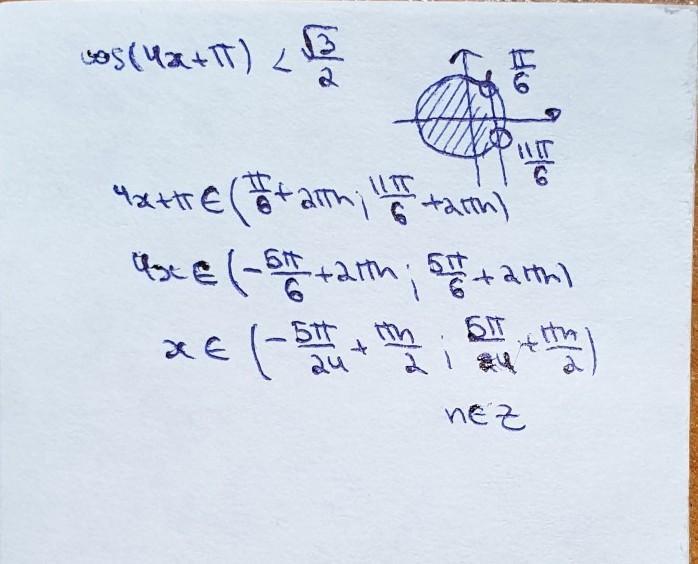 cos(4x+π) < √3/2
π/6
11π/6
4x+π ∈ (π/6 + 2πn ; 11π/6 + 2πn)
4x ∈ (-5π/6 + 2πn ; 5π/6 + 2πn)
x ∈ (-5π/24 + πn/2 ; 5π/24 + πn/2)
n ∈ Z